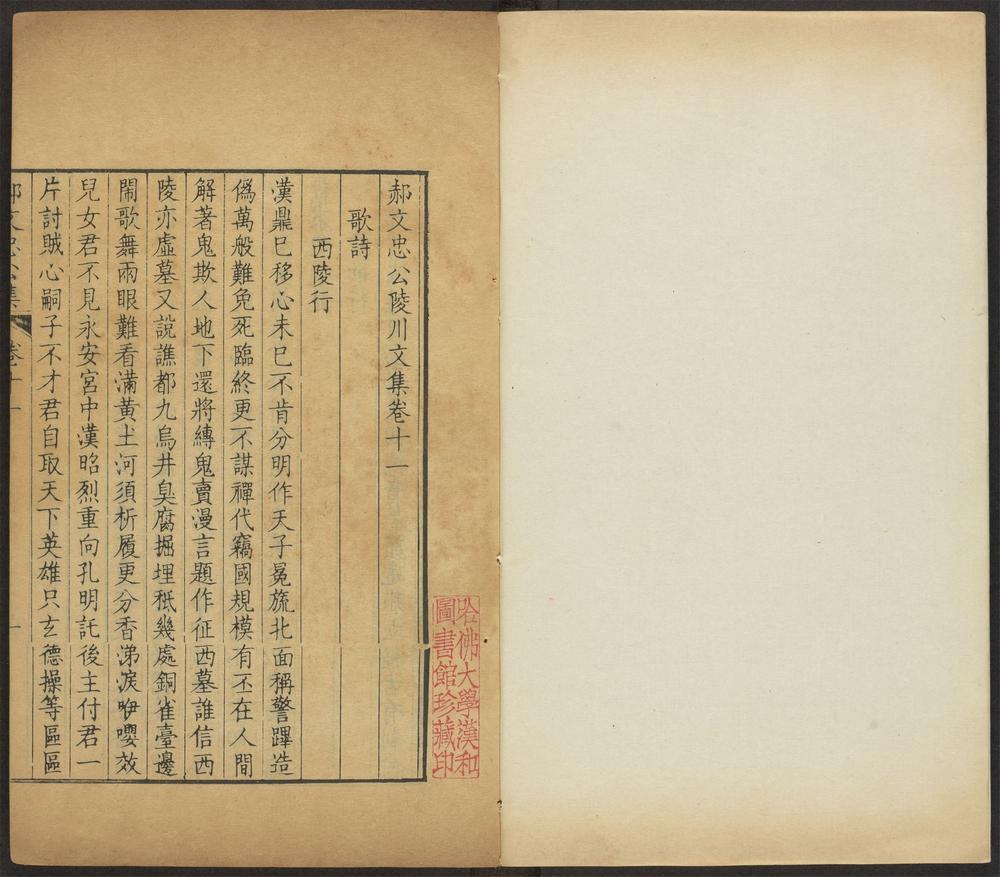 哈佛大學漢和
圖書館珍藏印
郝文忠公陵川文集卷十一
歌詩
西陵行
漢鼎已移心未已不肯分明作天子冕旒北面稱警蹕造
僞萬般難免死臨終更不謀禪代竊國規模有丕在人間
解著鬼欺人地下還將縳鬼賣漫言題作征西墓誰信西
陵亦虛墓又說譙都九烏井臭腐掘埋秪幾處銅雀臺邊
鬧歌舞兩眼難看滿黄土河須析履更分香涕淚咿嚶效
兒女君不見永安宮中漢昭烈重向孔明託後主付君一
片討賊心嗣子不才君自取天下英雄只玄德操等區區
郝文忠公集 卷十一 一